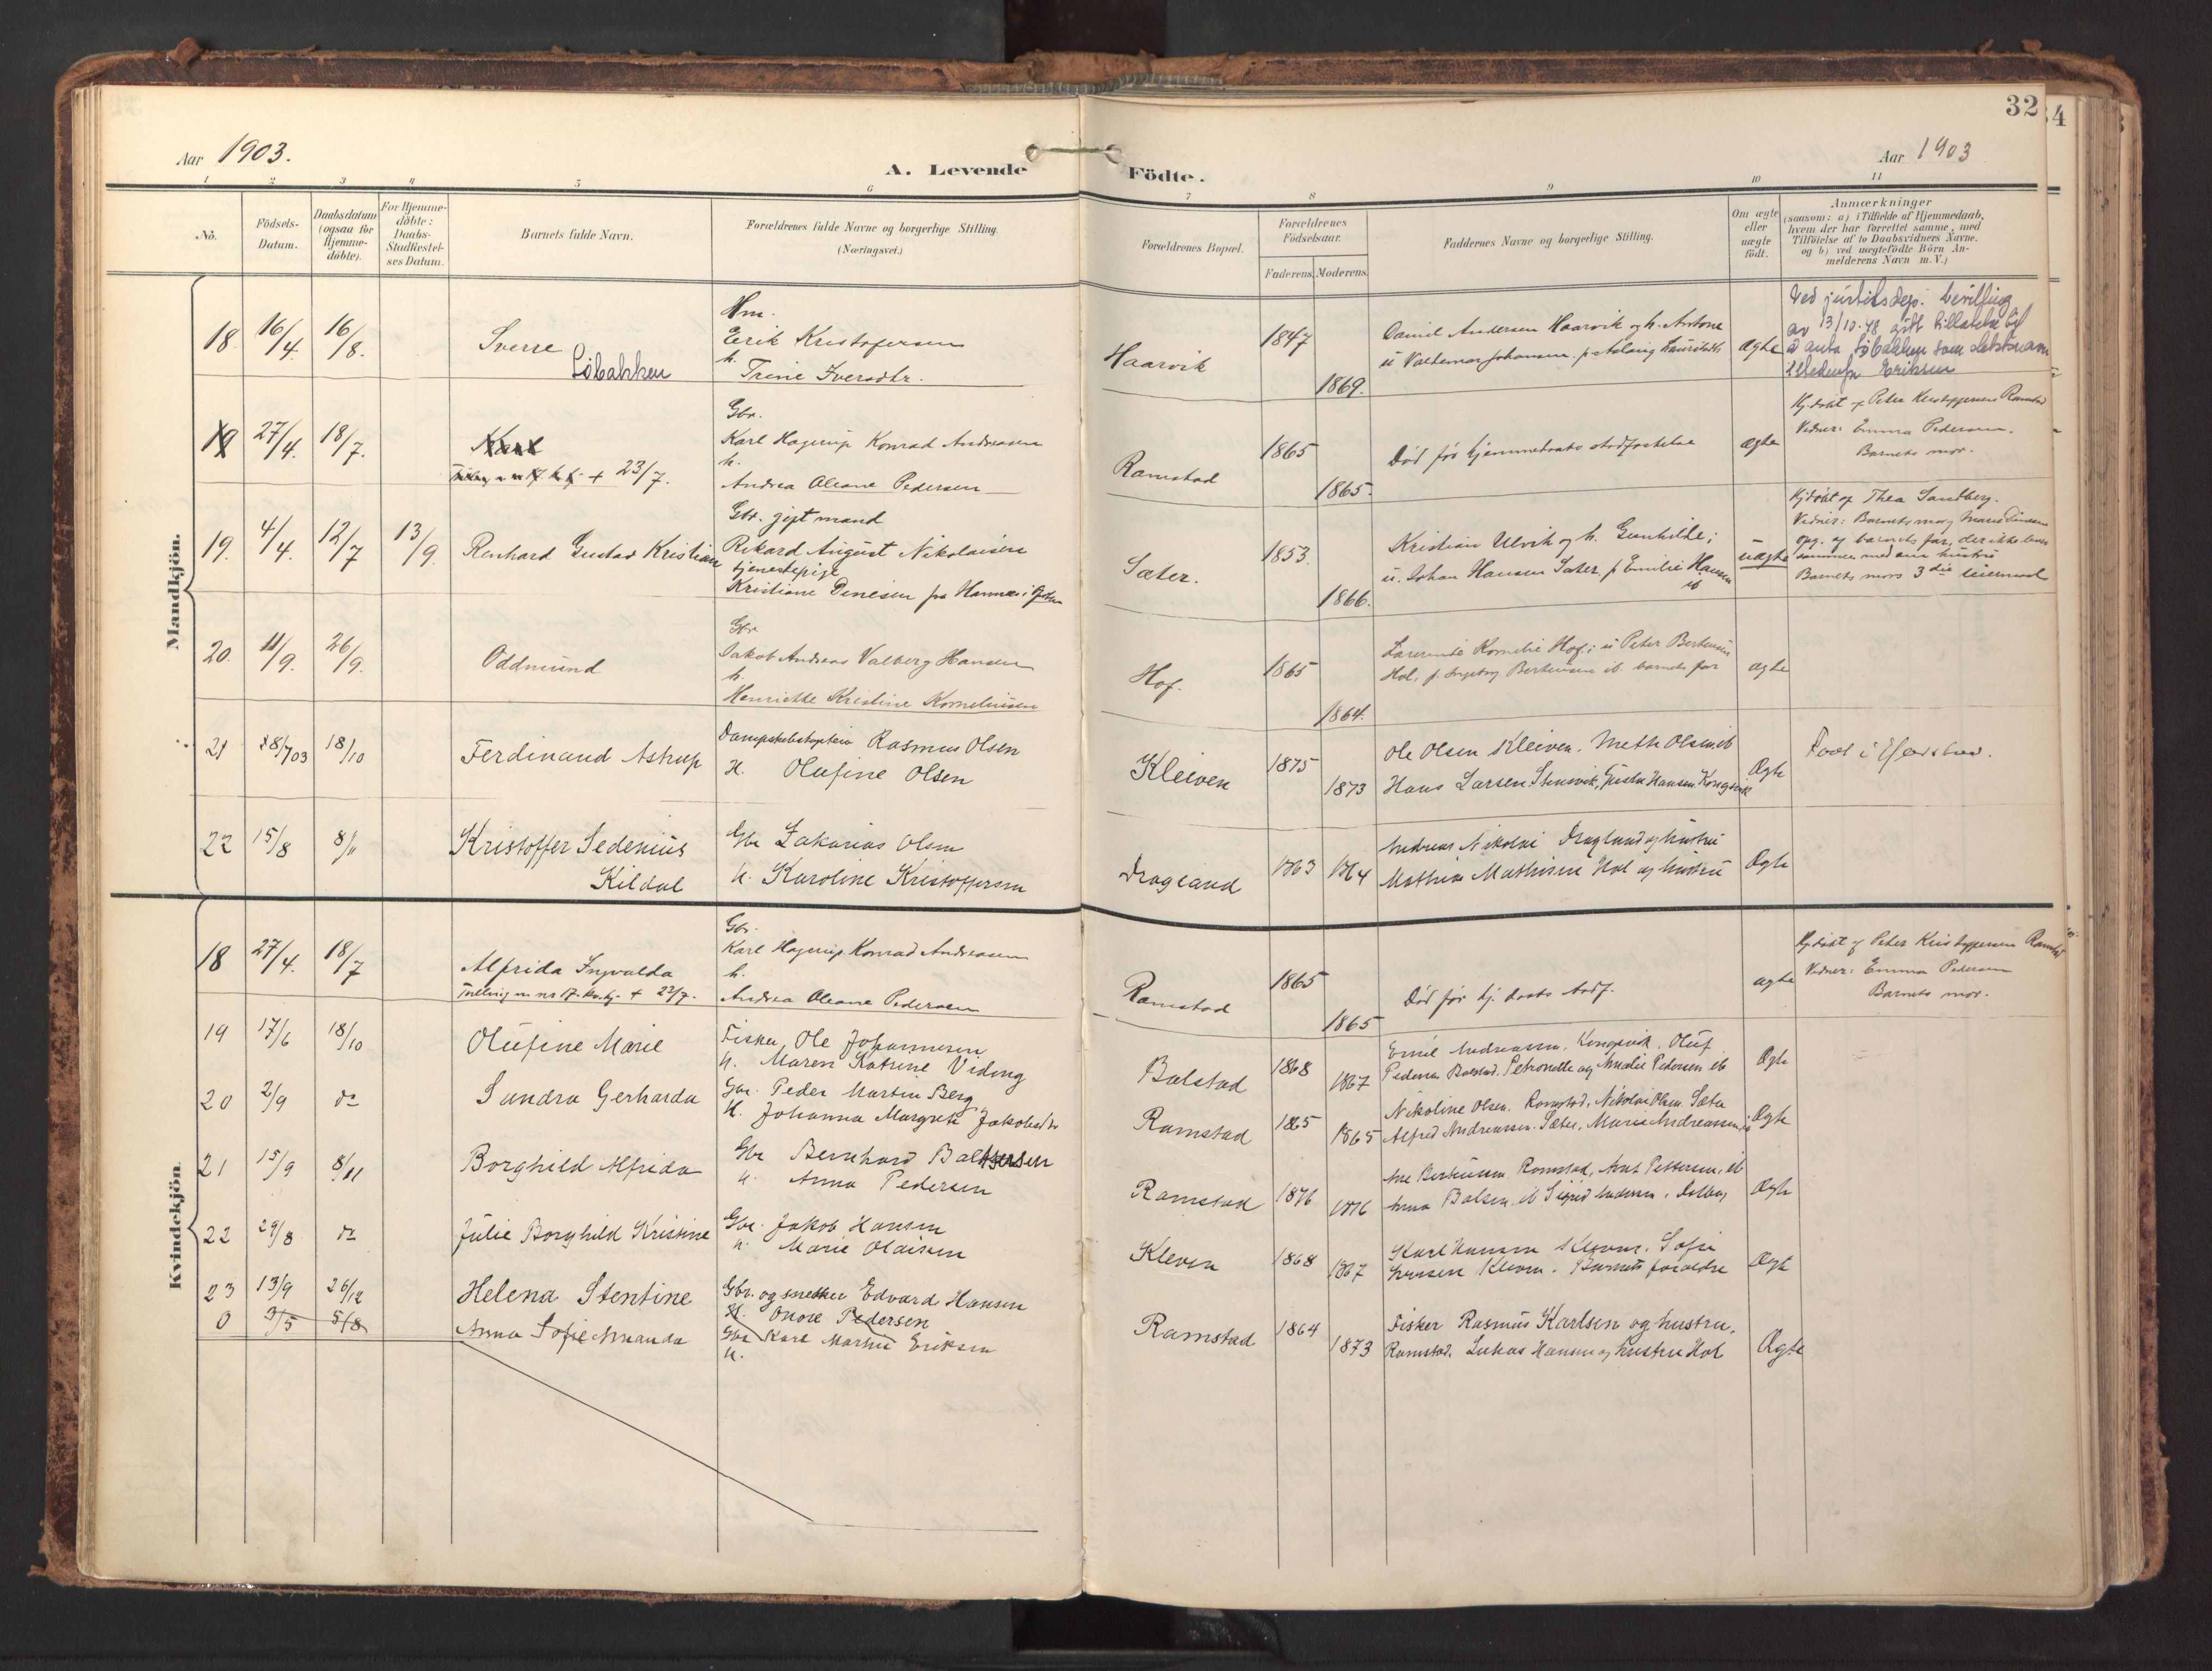 32
4
Aar 1903.
A. Levende
Födte.
Aar 1903
1 2 3 4 5 6
7 8 9 10 11
No.
Födsels-Datum.
Daabsdatum (ogsaa for Hjemme-döbte).
For Hjemme-döbte: Daabs-Stadfæstel-ses Datum.
Barnets fulde Navn.
Forældrenes fulde Navne og borgerlige Stilling.
(Næringsvei.)
Forældrenes Bopæl.
Forældrenes Födselsaar.
Faderens. Moderens.
Faddernes Navne og borgerlige Stilling.
Om ægte eller uægte födt.
Anmærkninger
(saasom: a) i Tilfælde af Hjemmedaab,
hvem der har forrettet samme, med
Tilföielse af to Daabsvidners Navne.
og b) ved uægtefödte Börn An-
melderens Navn m. V.)
Mandkjön.
18 16/4. 16/8.
Sverre
Søbakken
Hm.
Erik Kristofersen
h.
Trine Iversdtr.
Haarvik
1847
1869.
Daniel Andersen Haarvik og h. Antone
Ægte
Ved justitsdep. bevilling
av 13/10-48 gitt tillatelse til
å anta Søbakken som slektsnavn
istedenfor Eriksen
19 27/4. 18/7.
Karl
+ 23/7.
Gbr.
Karl Hagerup Konrad Andreasen
h.
Andrea Oleane Pedersen
Ramstad
1865
1865.
Død før hjemmedaabs stadfæstelse
ægte
Hj.døbt af Peter Kristoffersen Ramstad
Vidner: Emma Pedersen.
Barnets mor.
19. 4/4. 12/7 13/9.
Renhard Gustav Kristian
Gbr. gift mand
Rikard August Nikolaisen
tjenestepige
Kristiane Denesen fra Hamnes i
Sæter.
1853.
1866.
Kristian Ulvik og h. Gunhilde;
u. Johan Hansen Sæter, p Emilie Hansen
ib
uægte
Hj.døbt af Thea Sandberg.
Vidner: Barnets mor og Marie
opg. af barnets far, der ikke lever
sammen med sin hustru
Barnets mors 3die leiermaal
20. 11/9. 26/9.
Oddmund
Gbr.
Jakob Andreas Valberg Hansen
h.
Henriette Kristine Korneliusen
Hof.
1865
1864.
Kornelie Hof; u Peter Berteusen
Hol, p. Ingeborg Berteusen ib. barnets far
ægte
21 28/7 03 18/10
Ferdinand Astrup
Dampskibskaptein Rasmus Olsen
H. Olufine Olsen
Kleiven
1875
1873
Ole Olsen Kleiven. Meth Olsen ib
Hans Larsen Stensvik, Gusta Hansen Kongsvik
Ægte
Født i Harstad.
22 15/8 8/11
Kristoffer Sedenius
Kildal
Gbr Zakarias Olsen
H. Karoline Kristoffersen
Dragland
1863 1864
Andreas Nikolai Dragland og hustru
Mathias Mathisen Hol og hustru
Ægte
Kvindekjön.
18 27/4. 18/7
Alfrida Ingvalda
Tvilling m. nr 17. + 23/7.
Gbr.
Karl Hagerup Konrad Andreasen
h.
Andrea Oleane Pedersen
Ramstad
1865
1865
Død før hj. daabs stadf.
ægte
Hj.døbt af Peter Kristoffersen Ramstad
Vidner: Emma Pedersen
Barnets mor.
19 17/6 18/10
Olufine Marie
Fisker Ole Johannesen
H. Maren Katrine Viding
Balstad
1868
1867
Emil Andreassen. Kongsvik. Oluf
Pedersen Balstad. Petronelle og Amalie Pedersen ib
Ægte
20 2/9 do
Sandra Gerharda
Gbr. Peder Martin Berg
H. Johanna Margrete Jakobsdtr
Ramstad
1865
1865
Nikoline Olsen. Ramstad, Nikolai Olsen Sæter
Alfred Andreassen. Sæter, Marie Andreassen, ib
Ægte
21 15/9 8/11
Borghild Alfrida
Gbr Bernhard Baltsersen
H. Anna Pedersen
Ramstad
1876
1876
Ane Berteusen Ramstad, Arnt Pettersen, ib
Anna Balsen ib Sigrid Andersen,
Ægte
22 29/8 do
Julie Borghild Kristine
Gbr. Jakob Hansen
H. Marie Olaisen
Kleven
1868
1867
Karl Hansen Kleven. Sofie
Hansen Kleven. Barnets forældre
Ægte
23 13/9 26/12
Helena Stentine
Gbr. og snekker Edvard Hansen
H. Onore Pedersen
Ramstad
1864
1873
Fisker Rasmus Karlsen og hustru,
Ramstad. Lukas Hansen og hustru Hol
Ægte
0 3/5 5/8
Anna Sofie Amanda
Gbr Karl Martin Eriksen
H.